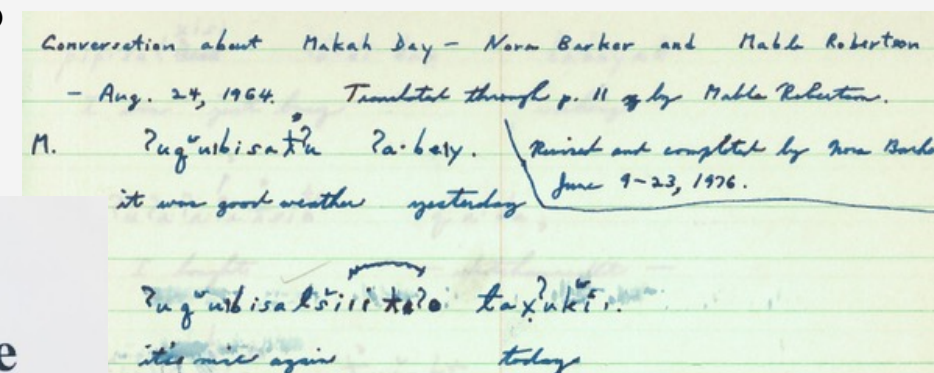 Conversation about Makah Day – Nora Barker and Mable Robertson
– Aug. 24, 1964. Translated through p. 11 by Mable Robertson.
M. ʔa·beɫy. Revised and completed by Nora Barker
June 9–23, 1976.
it was good weather yesterday
it's nice again today
e